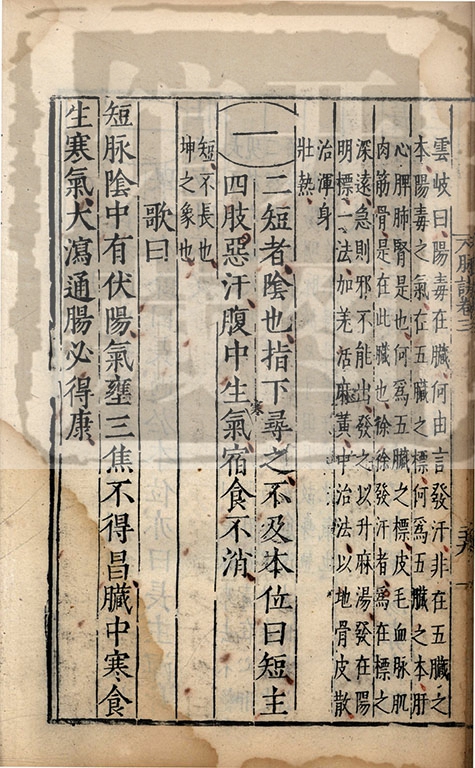 脉訣卷三
雲岐曰陽毒在臟何由言發汗非在五臟之
本陽毒之氣在五臟之標何爲五臟之本肝
心脾肺腎是也何爲五臟之標皮毛血脉肌
肉筋骨是在此臟也徐徐發汗者爲在標之
深遠急則邪不能出發之以升麻湯發在陽
明標一法加羌活麻黃中治法以地骨皮散
治渾身
壯熱
一
二短者陰也指下尋之不及本位曰短主
四肢惡汗腹中生氣宿食不消
寒
短不長也
坤之象也
歌曰
短脉陰中有伏陽氣壅三焦不得昌臟中寒食
生寒氣大瀉通腸必得康